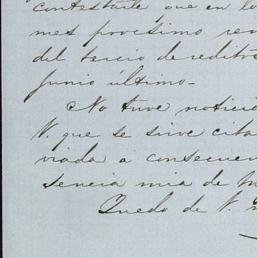 contestarle que en los
mes procsimo
del tercio de reditos
Junio último.
No tuve noticia
V. que se sirve cita
viada a consecuen
sencia mia de
Quedo de V.